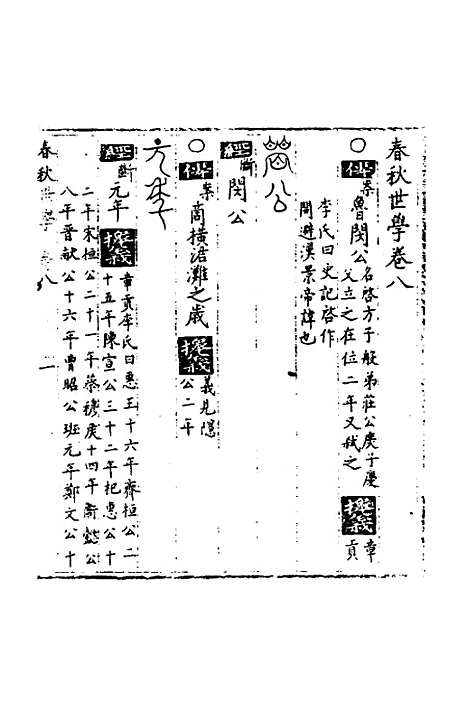 春秋世學卷八
○傳案魯閔公名啓方子般弟莊公庶子慶
父立之在位二年又弒之證義章貢
李氏曰史記啓作
閔避漢景帝諱也
公
經斷閔公
○傳案商橫涒灘之歲證義義見隱
公二年
元年
經斷元年證義章貢李氏曰惠王十六年齊桓公二
十五年陳宣公三十二年杞惠公十
二年宋桓公二十一年蔡穆侯十四年衛懿公
八年晉獻公十六年曹昭公班元年鄭文公十
春秋世學卷八 一